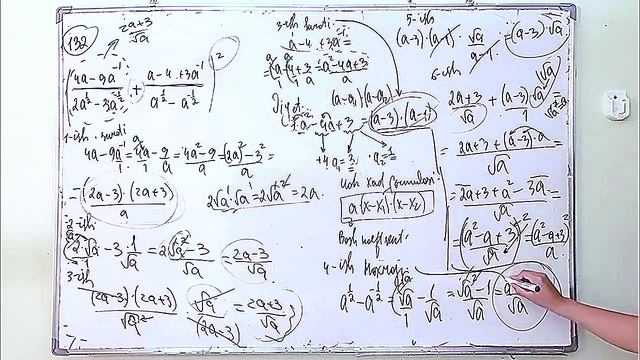 132
2a+3/√a
(4a-9a⁻¹/2a^½-3a^-½ + a-4+3a⁻¹/a^½-a^-½)²
1-ish surati
4a-9a⁻¹ = 4a/1 - 9/a = 4a²-9/a = (2a)²-3²/a
= (2a-3)·(2a+3)/a
2√a·√a = 2√a² = 2a.
2-ish
2·√a/1 - 3·1/√a = 2√a²-3/√a = 2a-3/√a
3-ish
(2a-3)·(2a+3)/√a² · √a/(2a-3) = 2a+3/√a
3-ish surati
a-4+3a⁻¹ =
= a/1 - 4/1 + 3/a = a²-4a+3/a
(a-a₁)·(a-a₂)
a²-4a+3 = (a-3)·(a-1)
Uch xad formulasi
a(x-x₁)·(x-x₂)
Bosh koeffisent
4-ish Maxraji
a^½-a^-½ = √a/1 - 1/√a = √a²-1/√a = a
√a
5-ish
(a-3)·(a-1)/ · √a/a-1 = (a-3)/√a
6-ish
2a+3/√a + (a-3)·√a/
= 2a+3+(a-3)·a/√a
= 2a+3+a²-3a/√a =
= (a²-a+3/√a)² = (a²-a+3)²/a